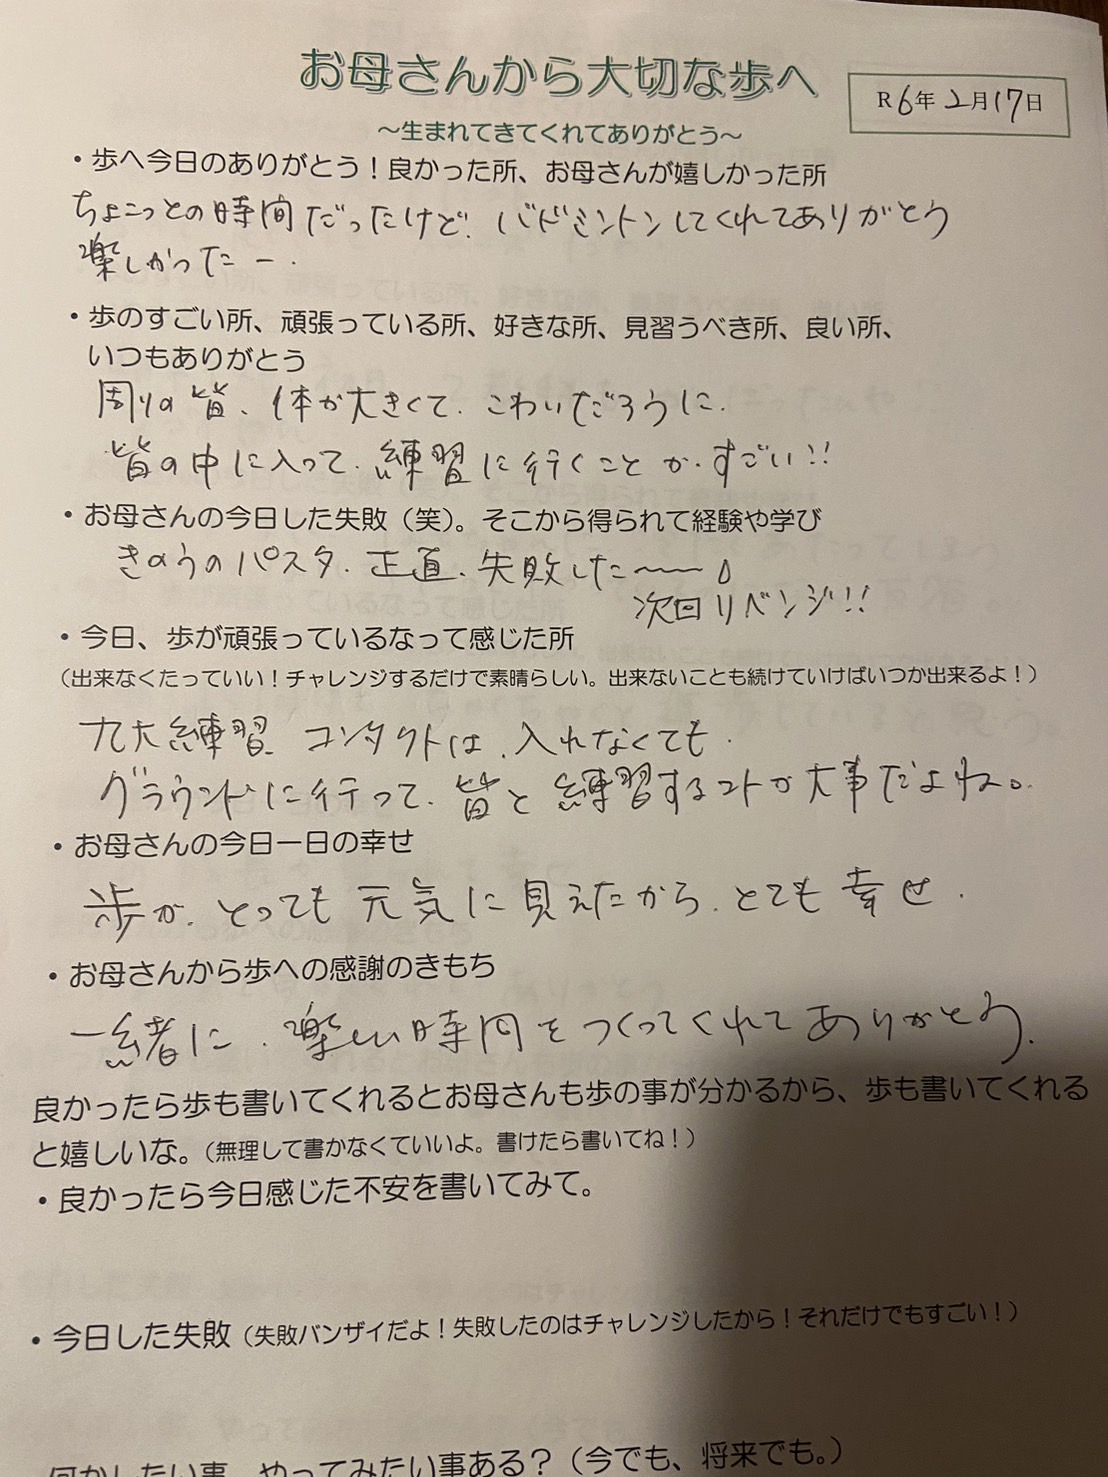 お母さんから大切な歩へ
R6年2月17日
～生まれてきてくれてありがとう～
・歩へ今日のありがとう！良かった所、お母さんが嬉しかった所
ちょこっとの時間だったけど、バドミントンしてくれてありがとう
楽しかったー．
・歩のすごい所、頑張っている所、好きな所、見習うべき所、良い所、
いつもありがとう
周りの皆、体が大きくて、こわいだろうに、
皆の中に入って、練習に行くことが、すごい!!
・お母さんの今日した失敗（笑）。そこから得られて経験や学び
きのうのパスタ、正直、失敗した〜〜
次回リベンジ!!
・今日、歩が頑張っているなって感じた所
（出来なくたっていい！チャレンジするだけで素晴らしい。出来ないことも続けていけばいつか出来るよ！）
九大練習、コンタクトは、入れなくても、
グラウンドに行って、皆と練習するコトが大事だよね。
・お母さんの今日一日の幸せ
歩が、とっても元気に見えたから、とても幸せ．
・お母さんから歩への感謝のきもち
一緒に、楽しい時間をつくってくれてありがとう．
良かったら歩も書いてくれるとお母さんも歩の事が分かるから、歩も書いてくれる
と嬉しいな。（無理して書かなくていいよ。書けたら書いてね！）
・良かったら今日感じた不安を書いてみて。
・今日した失敗（失敗バンザイだよ！失敗したのはチャレンジしたから！それだけでもすごい！）
何かしたい事、やってみたい事ある？（今でも、将来でも。）